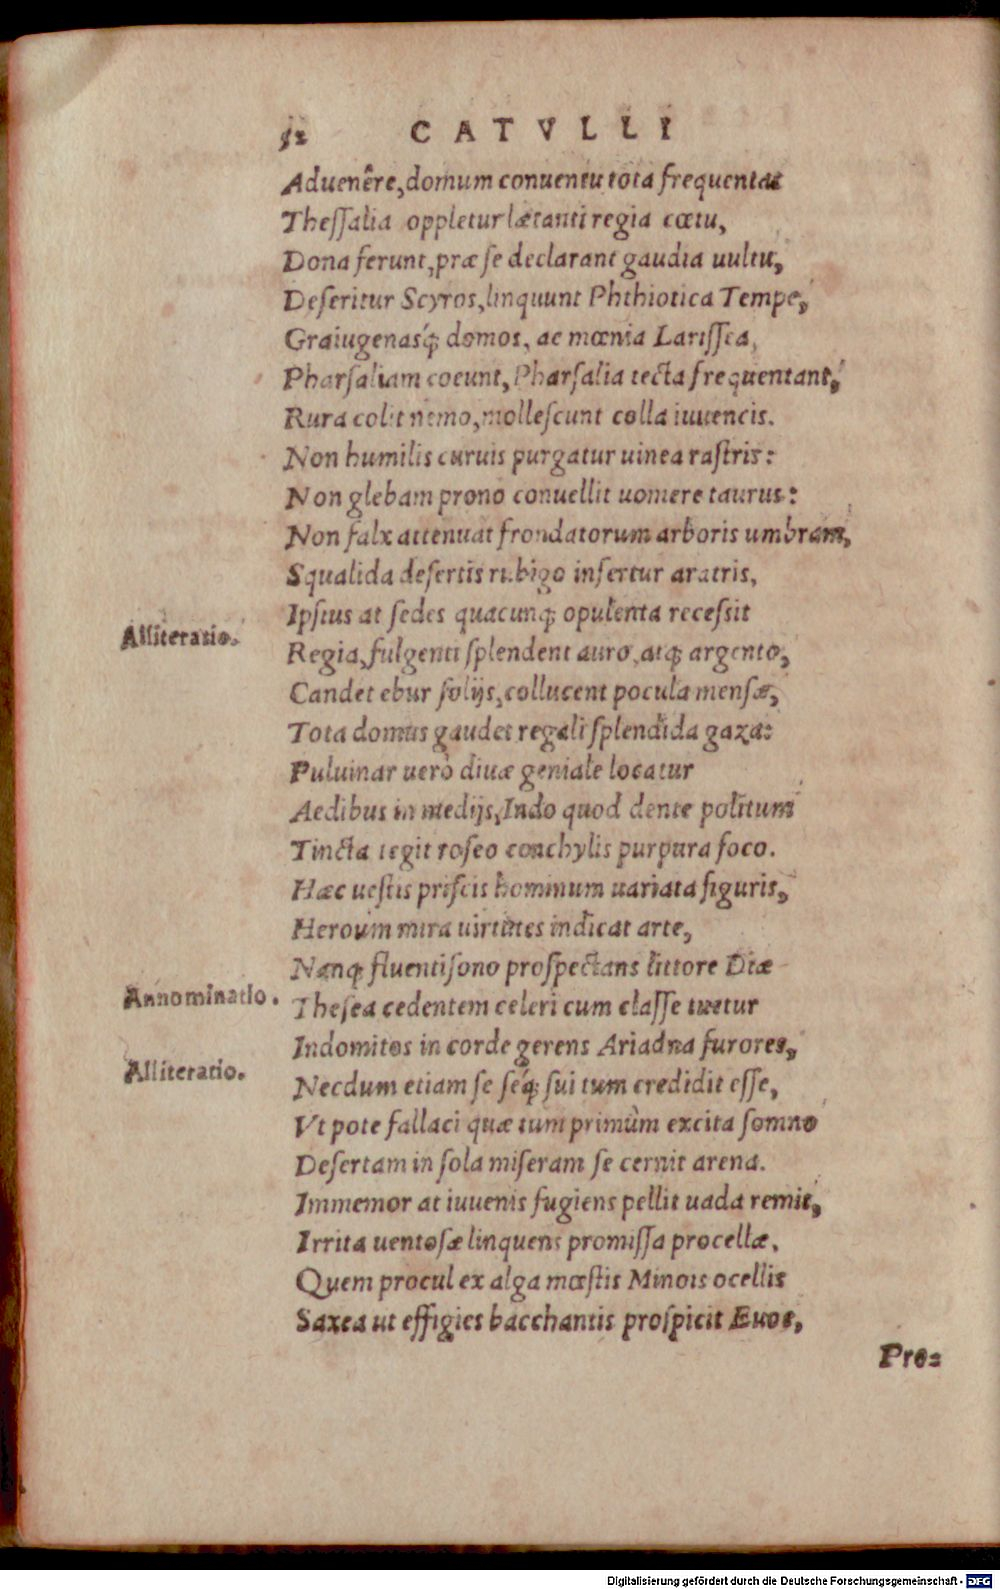 52 CATVLLI
Aduenêre, domum conuentu tota frequentat
Thessalia oppletur lætanti regia cœtu,
Dona ferunt, præ se declarant gaudia uultu,
Deseritur Scyros, linquunt Phthiotica Tempe,
Graiugenasq́; domos, ac mœnia Larissea,
Pharsaliam coeunt, Pharsalia tecta frequentant,
Rura colit nemo, mollescunt colla iuuencis.
Non humilis curuis purgatur uinea rastris:
Non glebam prono conuellit uomere taurus:
Non falx attenuat frondatorum arboris umbram,
Squalida desertis rubigo infertur aratris,
Ipsius at sedes quacunq; opulenta recessit
Alliteratio.
Regia, fulgenti splendent auro, atq; argento,
Candet ebur solijs, collucent pocula mensæ,
Tota domus gaudet regali splendida gaza:
Puluinar uerò diuæ geniale locatur
Aedibus in medijs, Indo quod dente politum
Tincta tegit roseo conchylis purpura foco.
Hæc uestis priscis hominum uariata figuris,
Heroum mira uirtutes indicat arte,
Nanq; fluentisono prospectans littore Diæ
Annominatio.
Thesea cedentem celeri cum classe tuetur
Indomitos in corde gerens Ariadna furores,
Alliteratio.
Necdum etiam se seq́; sui tum credidit esse,
Vt pote fallaci quæ tum primùm excita somno
Desertam in sola miseram se cernit arena.
Immemor at iuuenis fugiens pellit uada remis,
Irrita uentosæ linquens promissa procellæ.
Quem procul ex alga mœstis Minois ocellis
Saxea ut effigies bacchantis prospicit Euoe,
Pro=
Digitalisierung gefördert durch die Deutsche Forschungsgemeinschaft - DFG